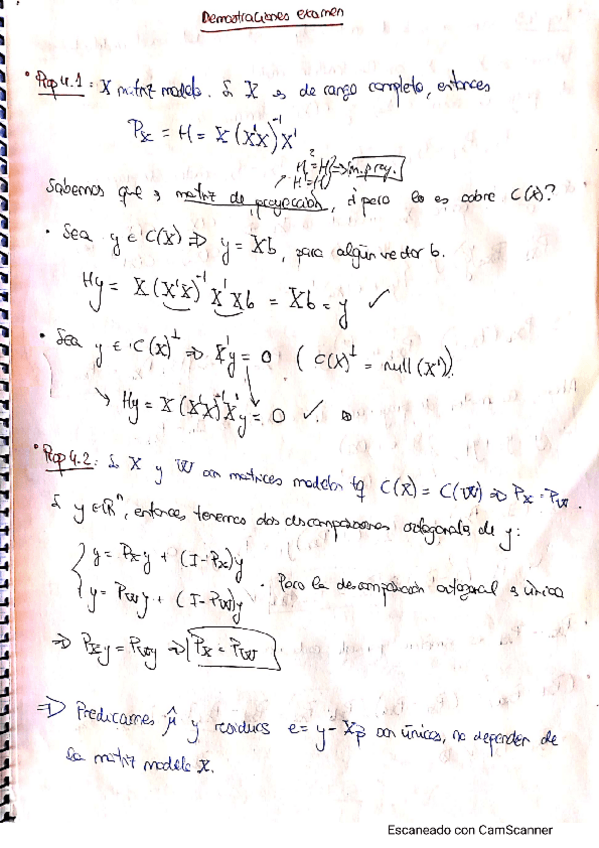 Demostraciones examen
• Prop 4.1: X matriz modelo. Si X es de rango completo, entonces
Pₓ = H = X(X'X)⁻¹X'
H² = H ⇒ m. proy.
H' = H
Sabemos que es matriz de proyección, ¿pero lo es sobre C(X)?
• Sea y ∈ C(X) ⇒ y = Xb, para algún vector b.
Hy = X(X'X)⁻¹X'Xb = Xb = y ✓
• Sea y ∈ C(X)^⊥ ⇒ X'y = 0 (C(X)^⊥ = null(X')).
↳ Hy = X(X'X)⁻¹X'y = 0 ✓.
• Prop 4.2: Si X y W son matrices modelo tq C(X) = C(W) ⇒ P_X = P_W.
Si y ∈ ℝⁿ, entonces tenemos dos descomposiciones ortogonales de y:
y = P_X y + (I - P_X)y
y = P_W y + (I - P_W)y
• Pero la descomposición ortogonal es única
⇒ P_X y = P_W y ⇒ P_X = P_W
⇒ Predicciones μ̂ y residuos e = y - Xβ̂ son únicos, no dependen de
la matriz modelo X.
Escaneado con CamScanner